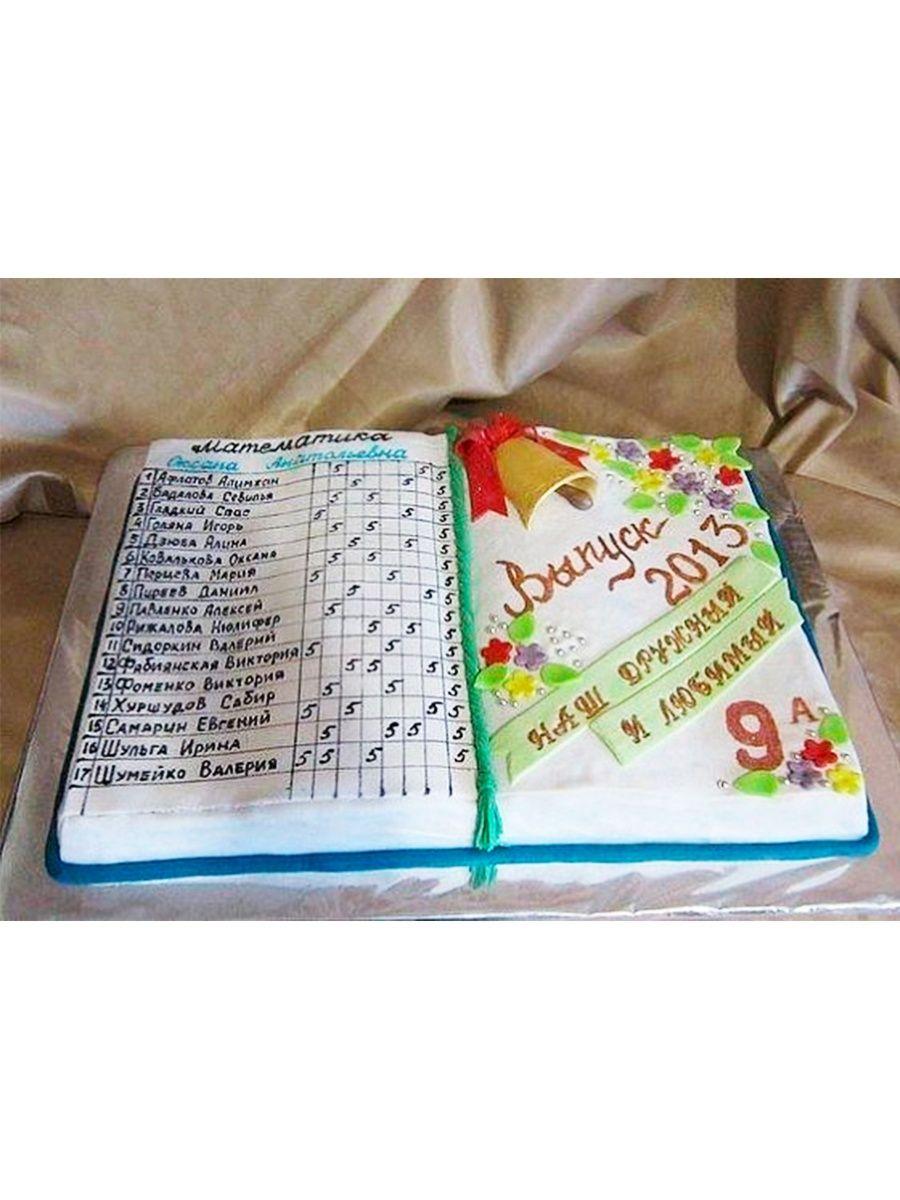 Математика
Оксана Анатольевна
1 Афлатов Алимхан 5 5 5 5
2 Бадалова Севилья 5 5 5
3 Гладкий Спас 5 5 5
4 Голяна Игорь 5 5 5
5 Дзюба Алина 5 5 5
6 Ковалькова Оксана 5 5 5
7 Перцева Мария 5 5 5
8 Пиреев Даниил 5 5 5
9 Павленко Алексей 5 5 5
10 Рыжалова Нюлифер 5 5 5
11 Сидоркин Валерий 5 5 5
12 Фабиянская Виктория 5 5 5 5
13 Фоменко Виктория 5 5 5
14 Хуршудов Сабир 5 5 5 5
15 Самарин Евгений 5 5 5 5
16 Шульга Ирина 5 5 5 5
17 Шумейко Валерия
Выпуск
2013
НАШ ДРУЖНЫЙ
И ЛЮБИМЫЙ
9 А